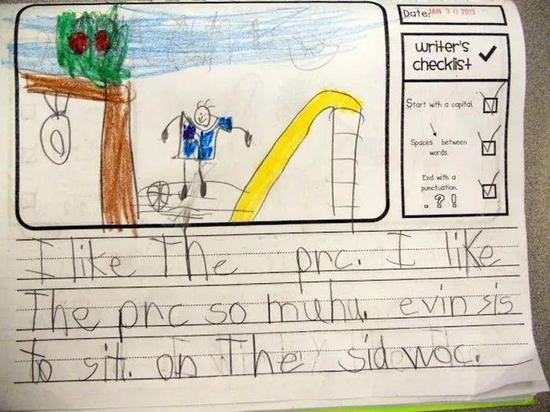 Date: JAN 30 2013
Writer's checklist
Start with a capital.
Spaces between words.
End with a punctuation.
. ? !
I like The prc. I like
The prc so muhu. evin sis
to sit. on The sidwoc.